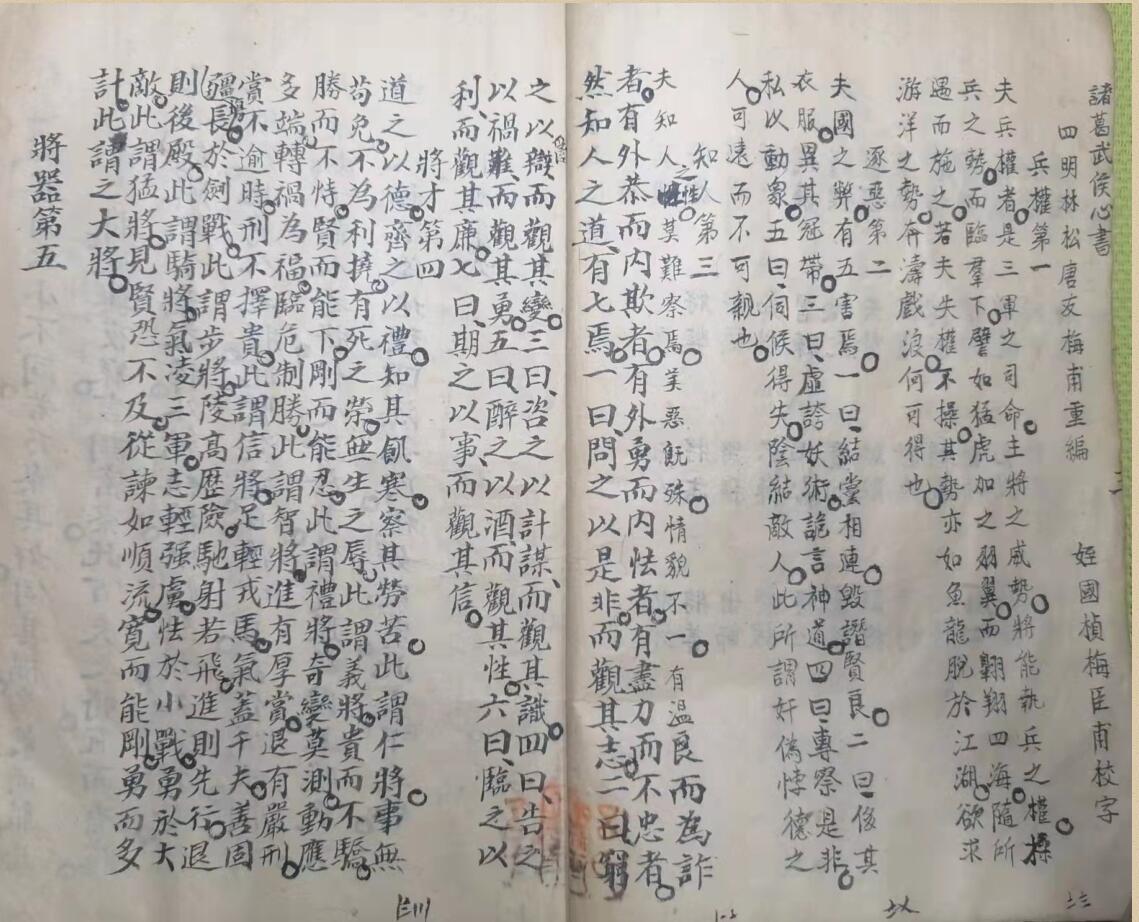 諸葛武侯心書
四明林松唐友梅甫重編 姪國楨梅臣甫校字
兵權第一
夫兵權者是三軍之司命主將之威勢將能執兵之權操
兵之勢而臨羣下譬如猛虎加之羽翼而翺翔四海隨所
遇而施之若夫失權不操其勢亦如魚龍脫於江湖欲求
游洋之勢奔濤戲浪何可得也
逐惡第二
夫國之弊有五害焉一曰結黨相連毀譖賢良二曰侈其
衣服異其冠帶三曰虛誇妖術詭言神道四曰專察是非
私以動衆五曰伺候得失陰結敵人此所謂奸偽悖德之
人可遠而不可親也
知人第三
夫知人之性莫難察焉美惡旣殊情貌不一有溫良而為詐
者有外恭而内欺者有外勇而内怯者有盡力而不忠者
然知人之道有七焉一曰問之以是非而觀其志二曰窮
之以辭而觀其變三曰咨之以計謀而觀其識四曰告之
以禍難而觀其勇五曰醉之以酒而觀其性六曰臨之以
利而觀其廉七曰期之以事而觀其信
將才第四
道之以德齊之以禮知其飢寒察其勞苦此謂仁將事無
苟免不為利撓有死之榮無生之辱此謂義將貴而不驕
勝而不恃賢而能下剛而能忍此謂禮將奇變莫測動應
多端轉禍為福臨危制勝此謂智將進有厚賞退有嚴刑
賞不逾時刑不擇貴此謂信將足輕戎馬氣蓋千夫善固
疆場長於劍戰此謂步將陵高歷險馳射若飛進則先行退
則後殿此謂騎將氣凌三軍志輕强虜怯於小戰勇於大
敵此謂猛將見賢恐不及從諫如順流寬而能剛勇而多
計此謂之大將
將器第五